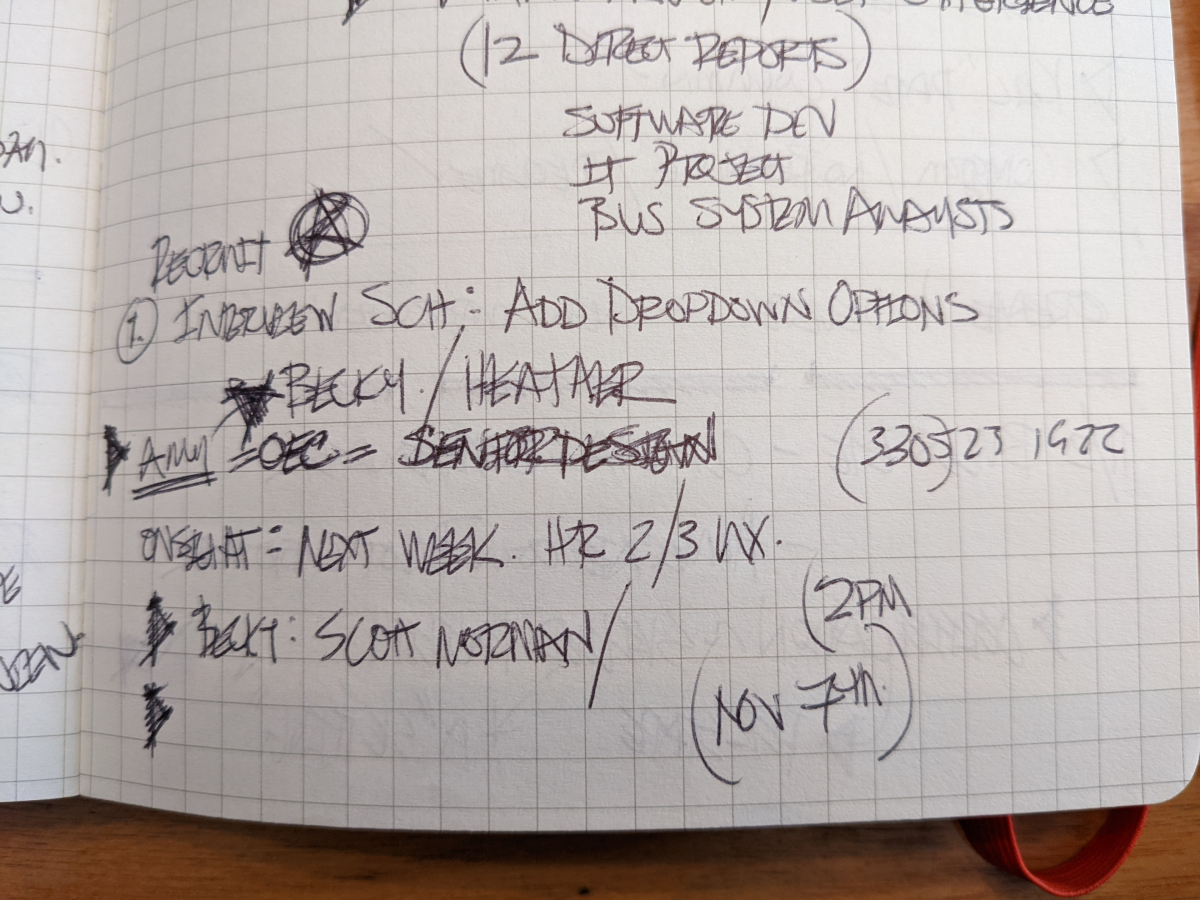 (12 DIRECT REPORTS)
SOFTWARE DEV
IT PROJECT
BUS SYSTEM ANALYSTS
RECRUIT A
1. INTERVIEW SCH: ADD DROPDOWN OPTIONS
BECKY / HEATHER
AMY = OEC = SENIOR DESIGN
(330) 523 1922
= NEXT WEEK. HR 2/3 UX.
BECKY: SCOTT NORMAN /
(2PM
(NOV 7th.)